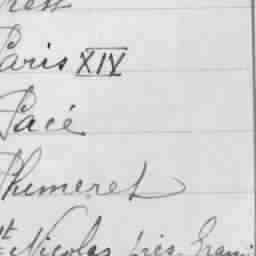 Paris XIV
Pacé
Thimeret
St Nicolas près Gran